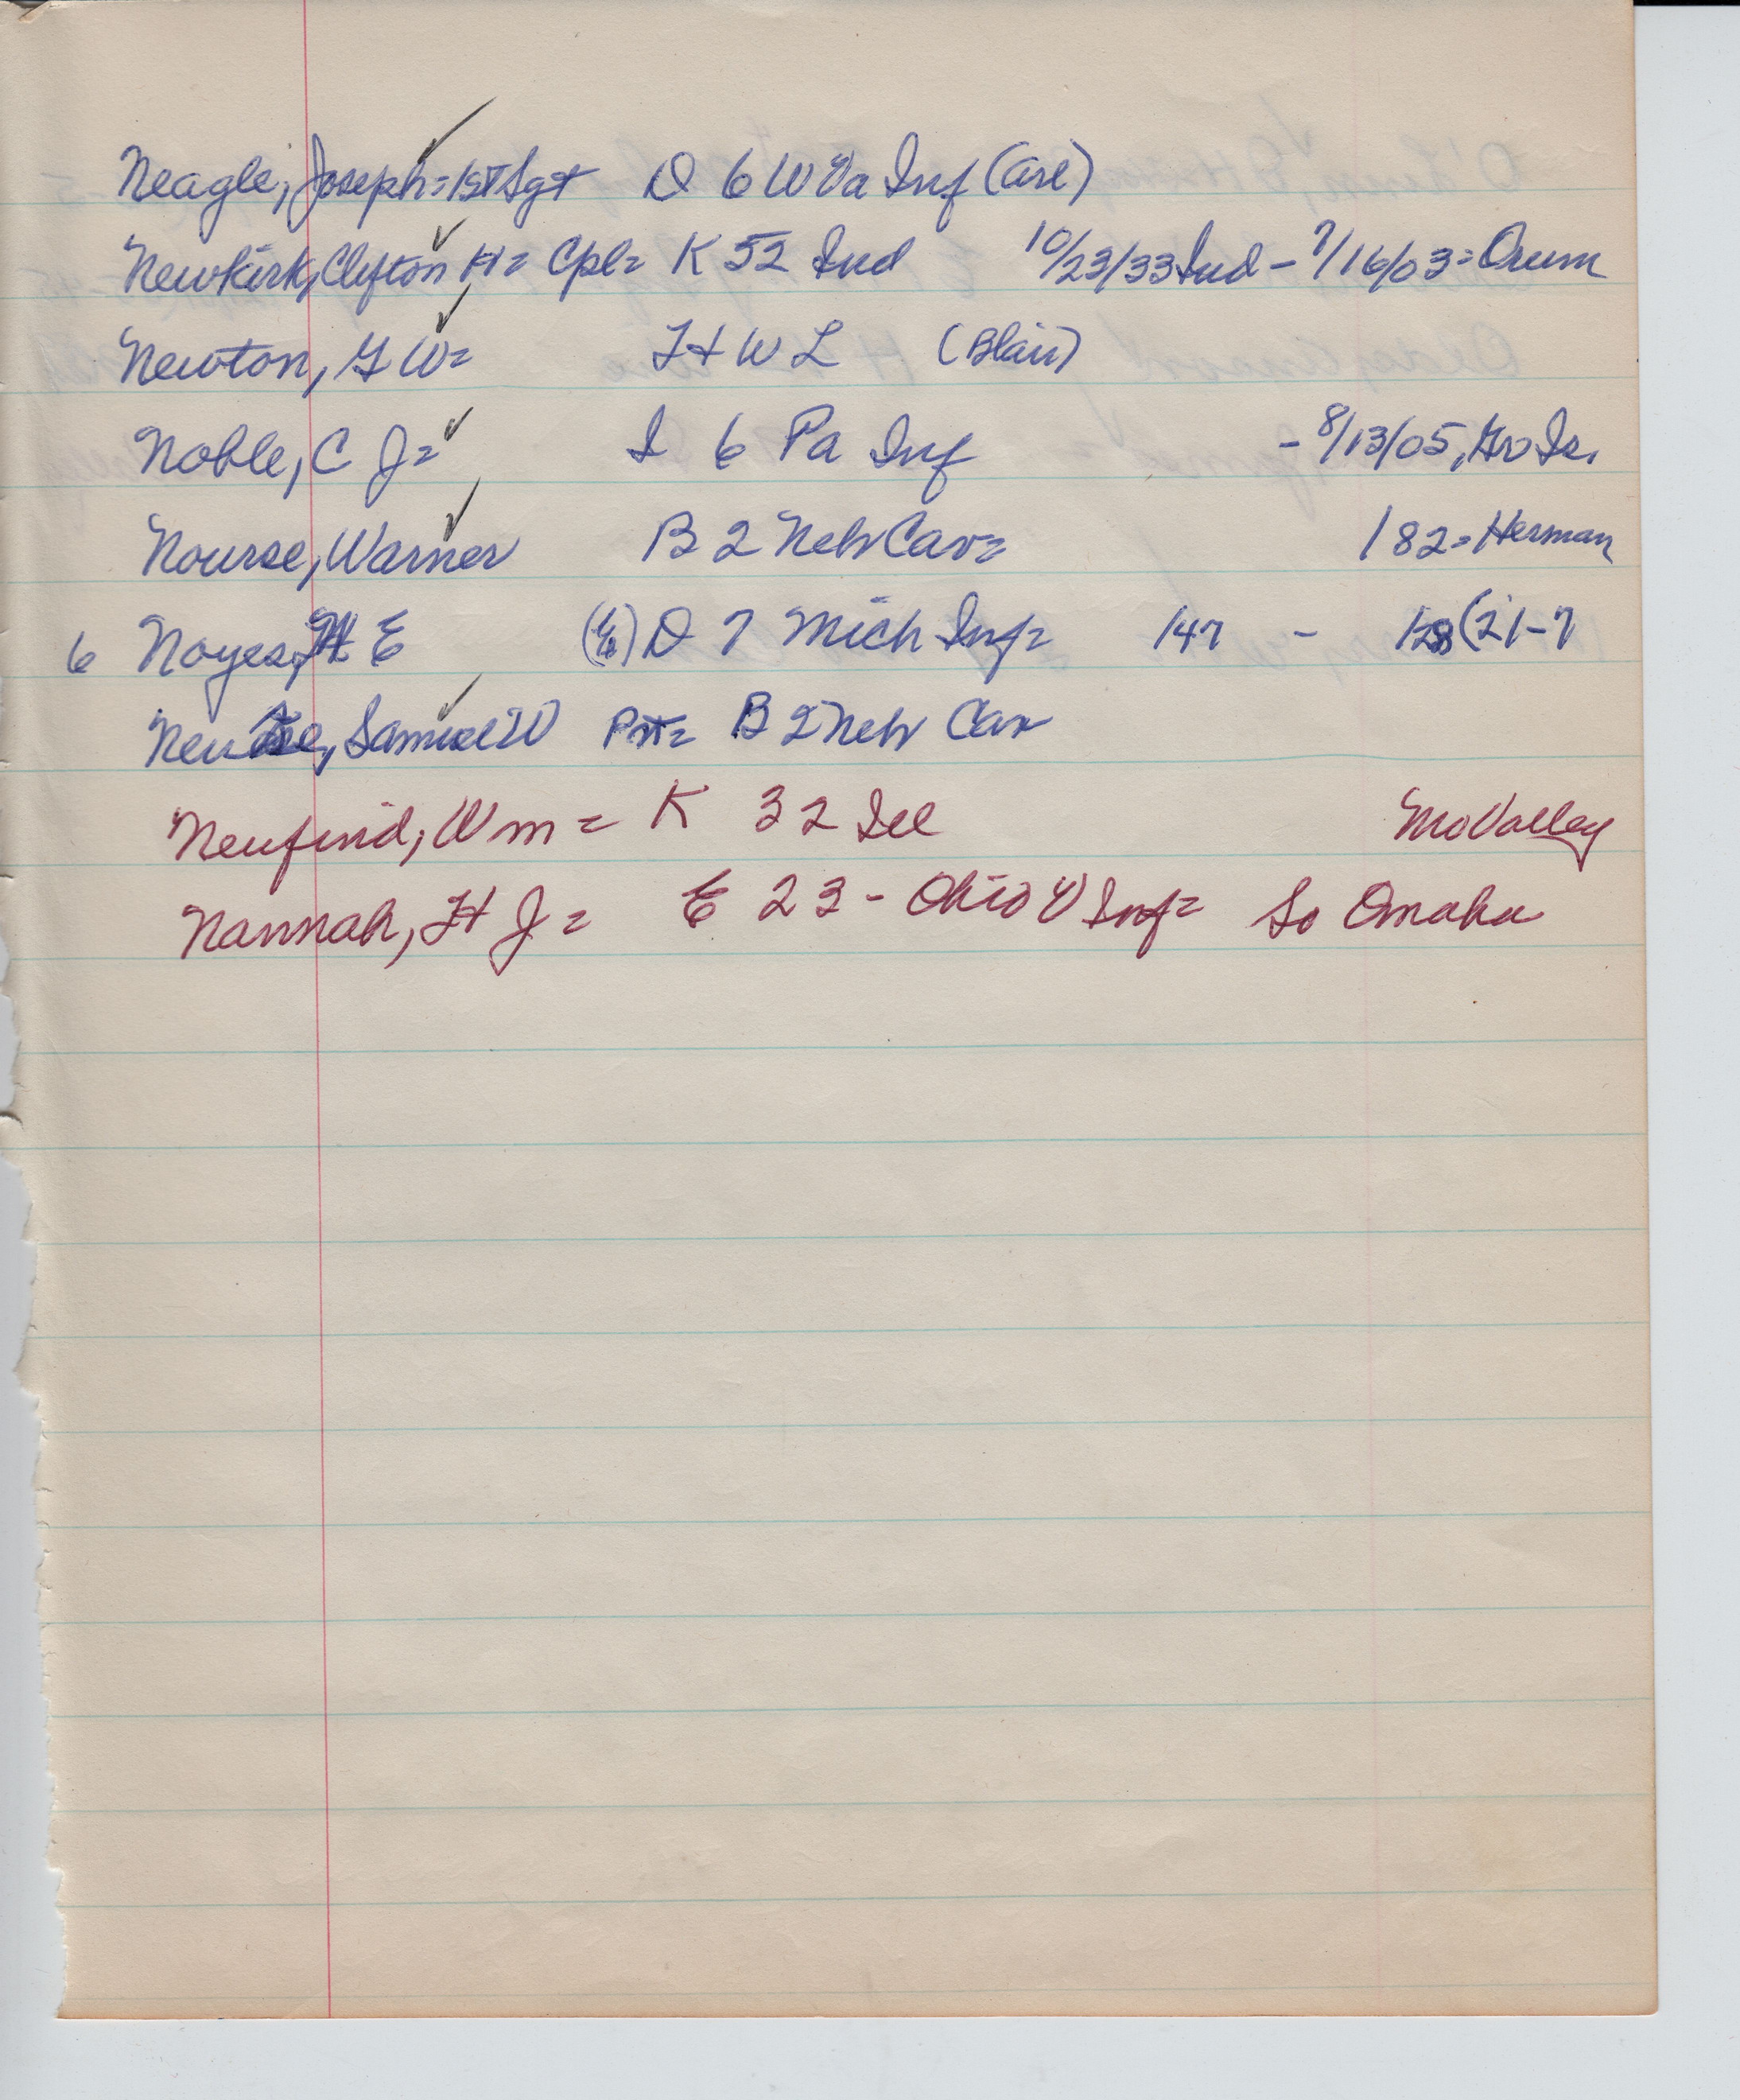 Neagle, Joseph = 1st Sgt D 6 W Va Inf (Arl)
Newkirk, Clifton H = Cpl = K 52 Ind 10/23/33 Ind - 7/16/03 = Orum
Newton, G W = H W L (Blair)
Noble, C J = I 6 Pa Inf - 8/13/05, Gr Is.
Nourse, Warner B 2 Neb Cav = / 82 = Herman
6 Noyes, H E D 7 Mich Inf = 147 - (21-7
Samuel W Pvt = B 2 Neb Cav
Neufind, Wm = K 32 Ill Mo Valley
Nannah, H J = E 23 - Ohio V Inf = So Omaha